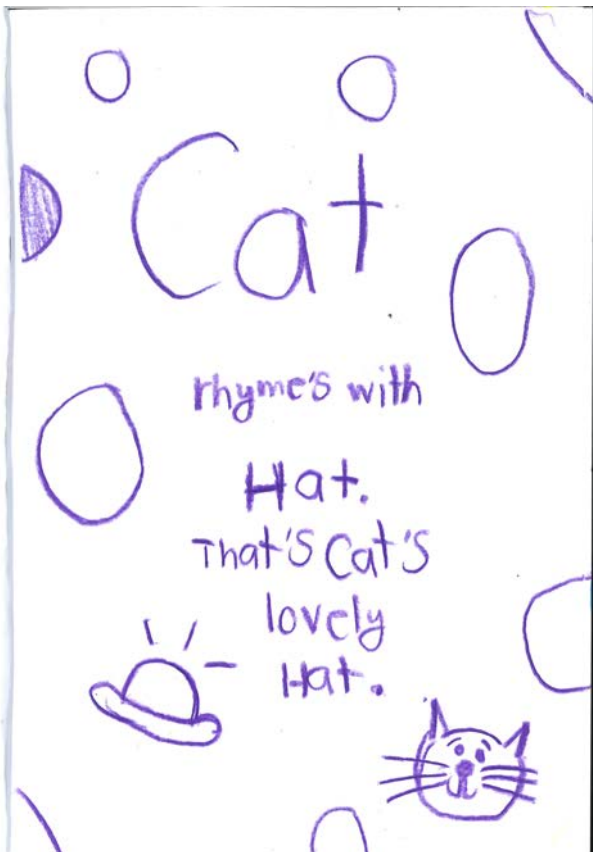 Cat
rhyme's with
Hat.
That's Cat's
lovely
Hat.